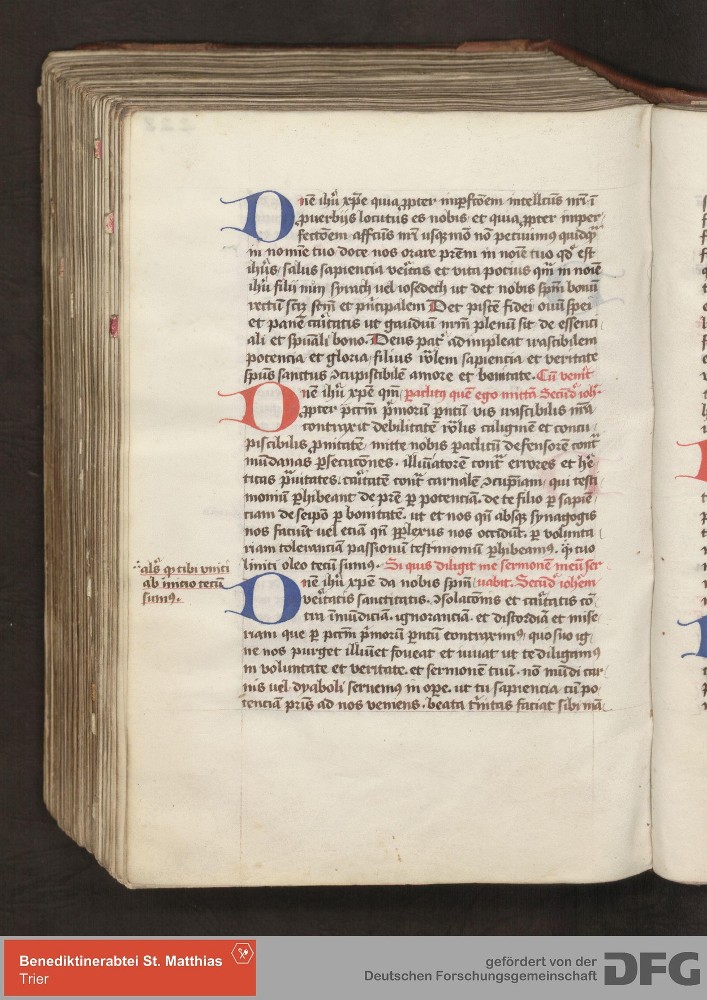 Dne ihu xpe quia ꝓpter imperfectōem intellcūs nr̄i ī
ꝓuerbijs locutus es nobis et quia ꝓpter imper
fectōem affcūs nr̄i usqꝫ mō nō petiuimꝰ quidqᷓ
in nomīe tuo doce nos orare prēm in noīe tuo qd̓ est
ihūs salus sapiencia veritas et vita pocius qm̄ in noīe
ihū filij nun syrach uel iosedech ut det nobis spm̄ bonū
rectū scꝫ sctm̄ et pncipalem Det pistē fidei ouū spei
et panē caritatis ut gaudiū nrm̄ plenū sit de essenci
ali et spūali bono. Deus pat̓ adimpleat irascibilem
potencia et gloria filius rōlem sapiencia et veritate
spūs sanctus ꝯcupiscibilē amore et bonitate. Cū venīt
Dne ihu xpe qm̄ paclitꝰ quē ego mittā Secūdꝰ ioh̓
ꝓpter pctm̄ pͥmorū pntū vis irascibilis nrā
contraxit debilitatē rōlis caliginē et concu
piscibilis ꝓnitatē mitte nobis paclitū defensorē contᷓ
mūdanas ꝑsecucōnes. illūiatorē contᷓ errores et he
ticas pᷓuitates. caritatē contᷓ carnalē ꝯcupiām. qui testi
moniū ꝑhibeant de prē ꝑ potenciā. de te filio ꝑ sapiē
ciam de seipō ꝑ bonitatē. ut et nos qn̄ absqꝫ synagogis
nos faciūt uel eciā qn̄ ꝑplexus nos occidūt. ꝑ volunta
riam tolerantiā passionū testimoniū ꝑhibeamꝰ. qͥ tuo
liniti oleo tecū sumꝰ. Si quis diligit me sermonē meū ser
als̓ qͥ tibi vniti
ab inicio tecū
sumꝰ.
Dne ihū xpe da nobis spm̄ uabit. Secūdꝰ iohēm
veritatis sanctitatis. ꝯsolacōnis et caritatis cō
tra īmūdiciā. ignoranciā. et discordiā et mise
riam que ꝑ pctm̄ pͥmorū pntū contraximꝰ quo suo ig
ne nos purget illūet foueat et uiuat ut te diligamꝰ
in voluntate et veritate. et sermonē tuū. nō mūdi car
nis uel dyaboli seruemꝰ in oꝑe. ut tu sapiencia cū po
tenciā pris̄ ad nos veniens. beata tnitas faciat sibi mā
Benediktinerabtei St. Matthias
Trier
gefördert von der
Deutschen Forschungsgemeinschaft
DFG